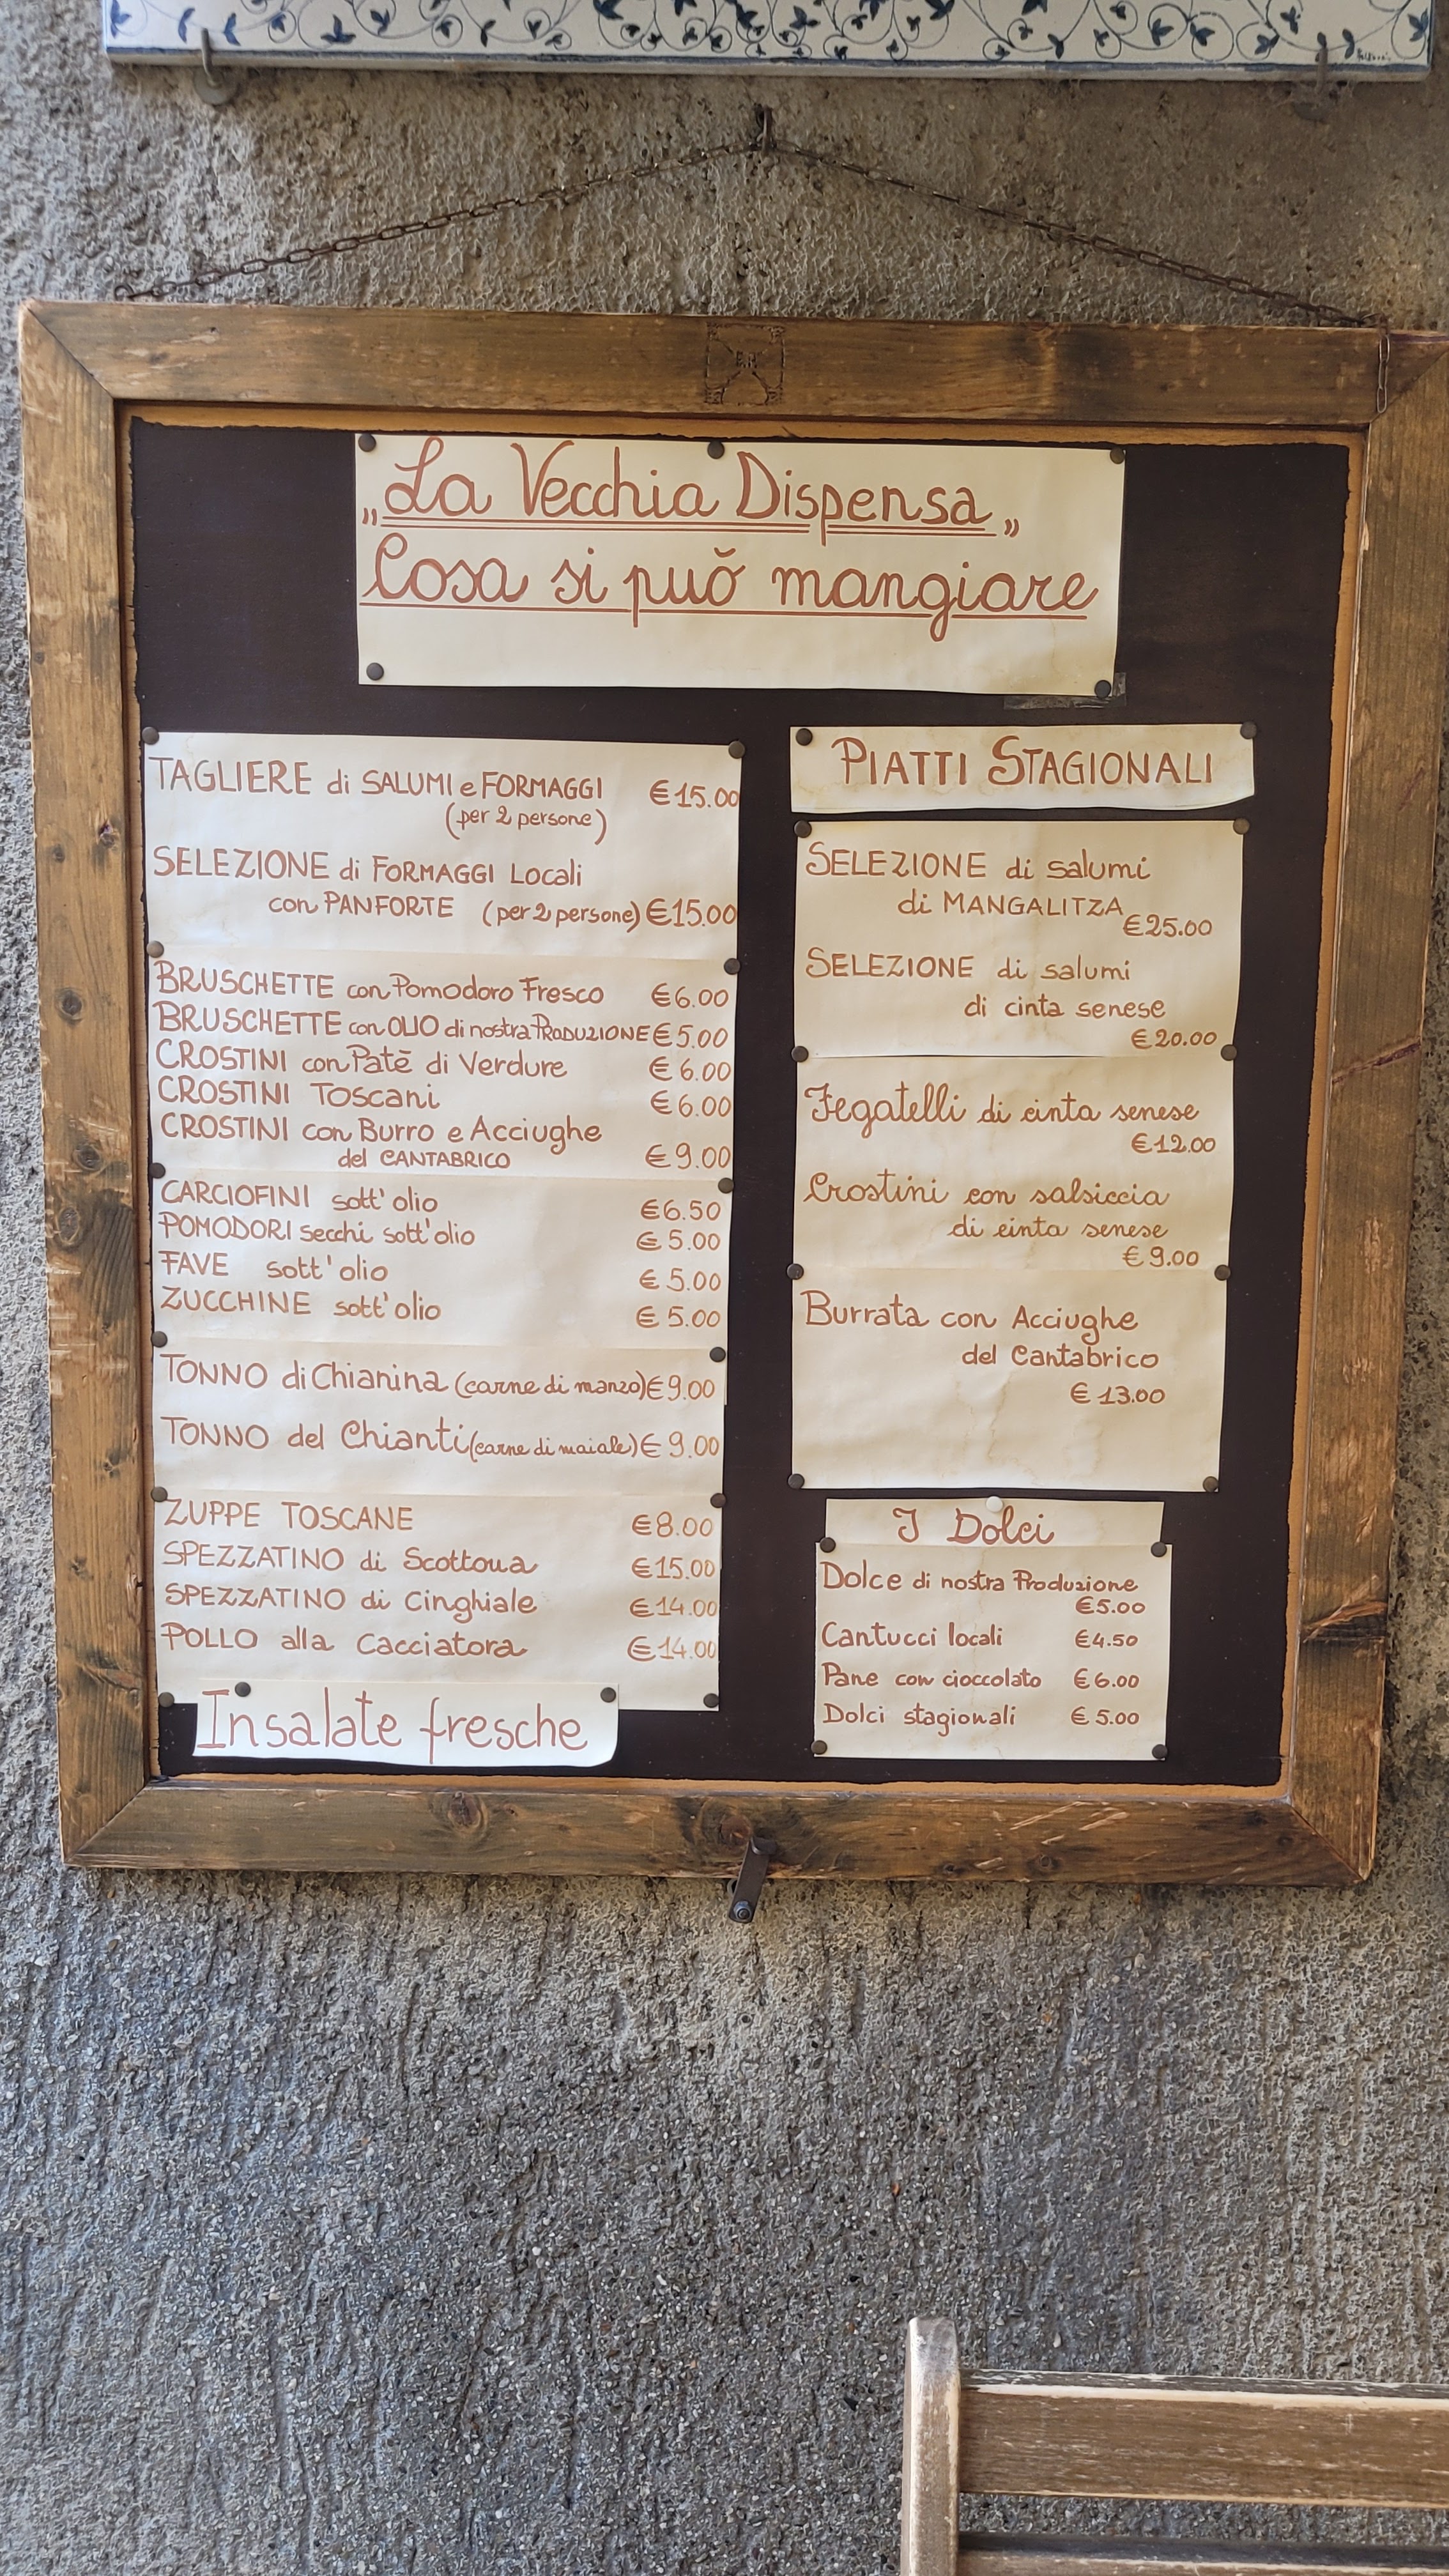 „La Vecchia Dispensa„
Cosa si può mangiare
TAGLIERE di SALUMI e FORMAGGI €15.00
(per 2 persone)
SELEZIONE di FORMAGGI Locali
con PANFORTE (per 2 persone) €15.00
BRUSCHETTE con Pomodoro Fresco €6.00
BRUSCHETTE con OLIO di nostra PRODUZIONE €5.00
CROSTINI con Patè di Verdure €6.00
CROSTINI Toscani €6.00
CROSTINI con Burro e Acciughe
del CANTABRICO €9.00
CARCIOFINI sott'olio €6.50
POMODORI secchi sott'olio €5.00
FAVE sott'olio €5.00
ZUCCHINE sott'olio €5.00
TONNO di Chianina (carne di manzo) €9.00
TONNO del Chianti (carne di maiale) €9.00
ZUPPE TOSCANE €8.00
SPEZZATINO di Scottona €15.00
SPEZZATINO di Cinghiale €14.00
POLLO alla Cacciatora €14.00
Insalate fresche
PIATTI STAGIONALI
SELEZIONE di salumi
di MANGALITZA
€25.00
SELEZIONE di salumi
di cinta senese
€20.00
Fegatelli di cinta senese
€12.00
Crostini con salsiccia
di cinta senese
€9.00
Burrata con Acciughe
del Cantabrico
€13.00
I Dolci
Dolce di nostra Produzione
€5.00
Cantucci locali €4.50
Pane con cioccolato €6.00
Dolci stagionali €5.00